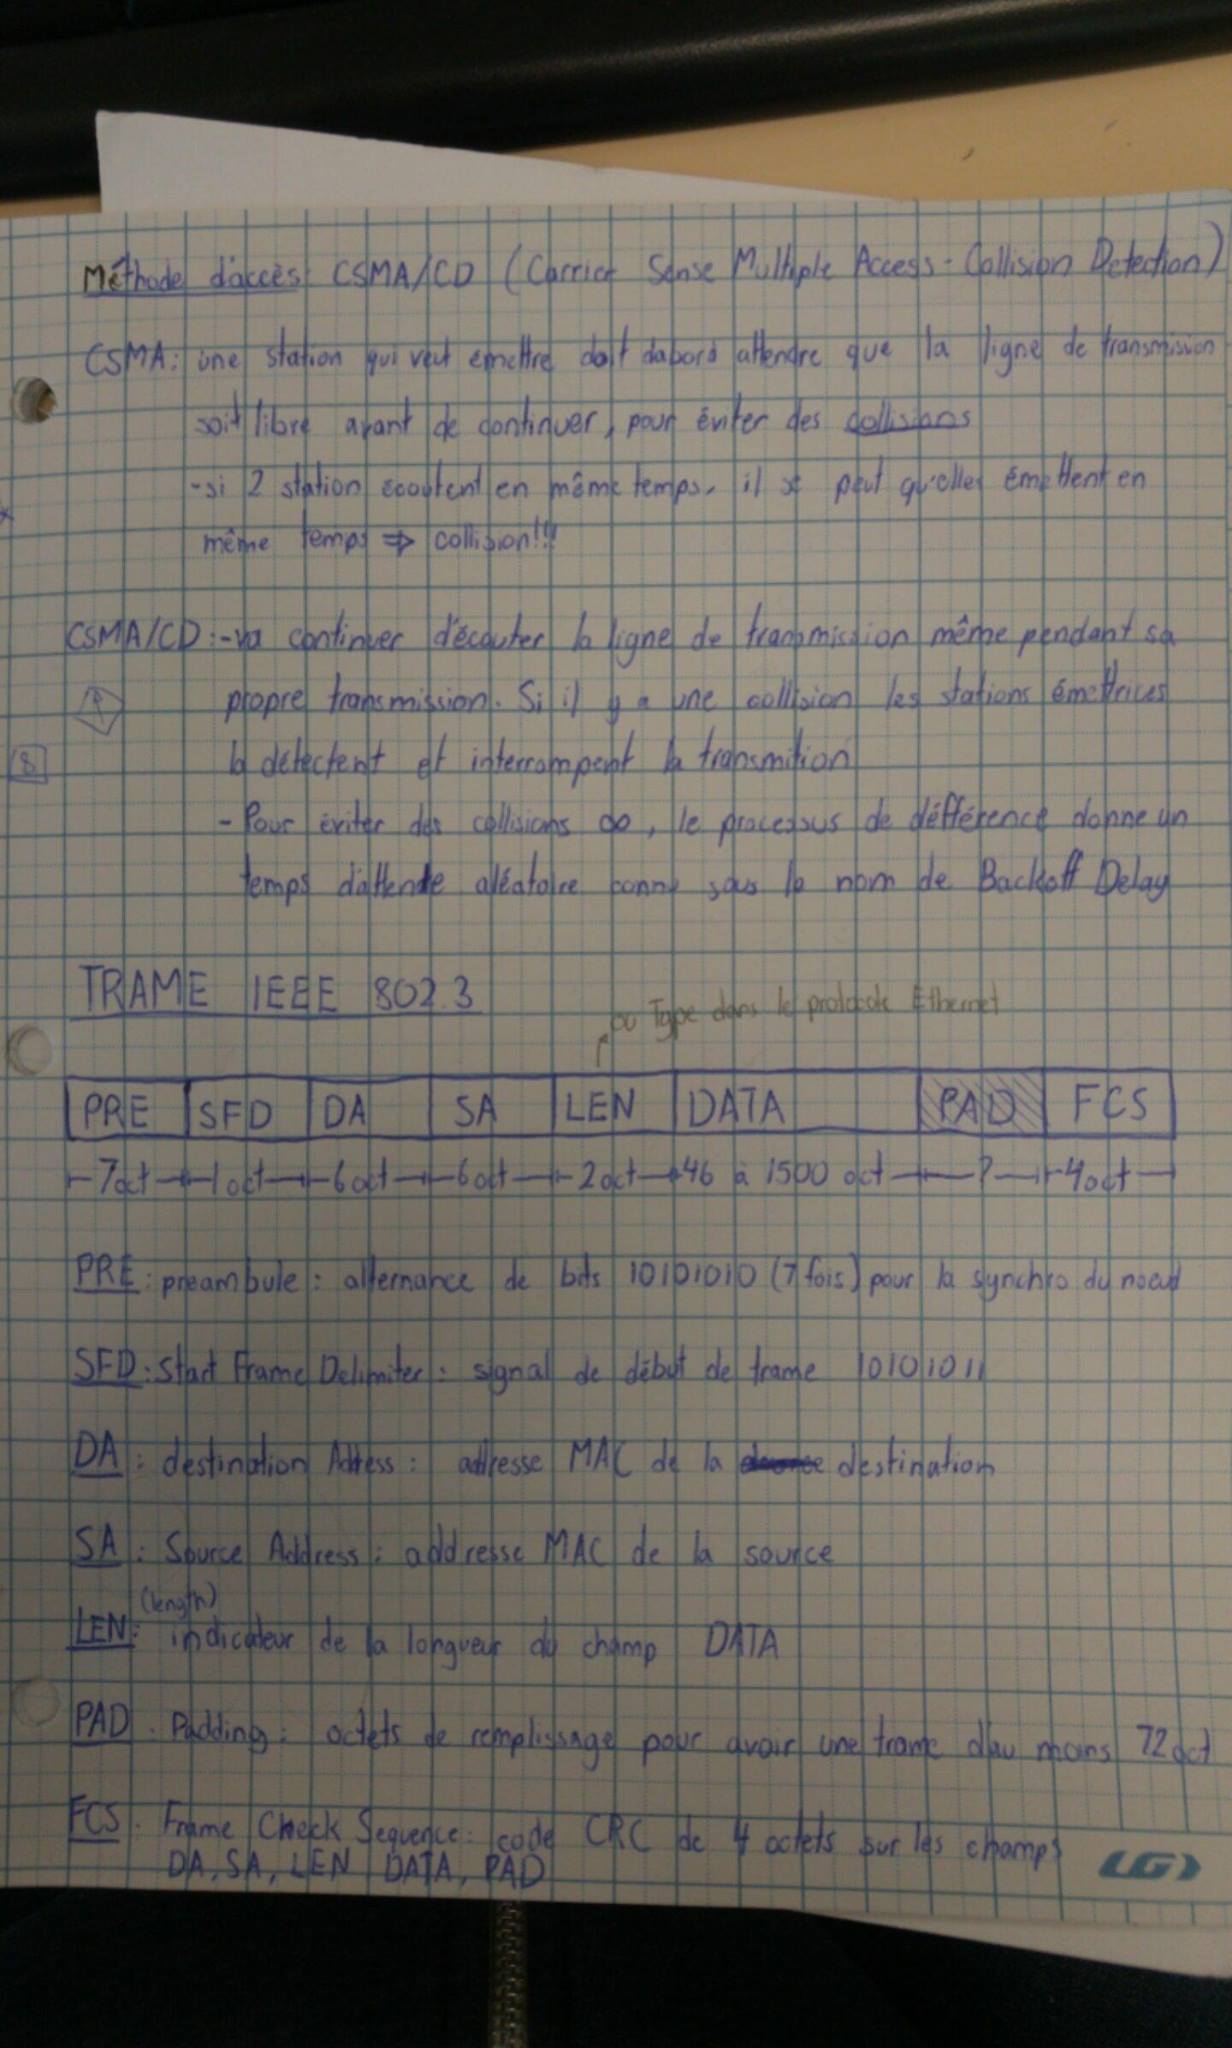 Méthode d'accès CSMA/CD (Carrier Sense Multiple Access - Collision Detection)
CSMA: une station qui veut émettre doit dabord attendre que la ligne de transmission
soit libre avant de continuer, pour éviter des collisions
-si 2 station écoutent en même temps, il se peut qu'elles émettent en
même temps ⇒ collision!!!
CSMA/CD: -va continuer d'écouter la ligne de transmission même pendant sa
propre transmission. Si il y a une collision les stations émettrices
8 la détectent et interrompent la transmition
- Pour éviter des collisions ∞, le processus de défférence donne un
temps d'attente aléatoire connu sous le nom de Backoff Delay
TRAME IEEE 802.3
ou Type dans le protocole Ethernet
PRE SFD DA SA LEN DATA PAD FCS
7oct 1oct 6oct 6oct 2oct 46 à 1500 oct ? 4oct
PRE: preambule: alternance de bits 10101010 (7 fois) pour la synchro du noeud
SFD: Start Frame Delimiter: signal de début de trame 10101011
DA: destination Address: adresse MAC de la destination
SA: Source Address: addresse MAC de la source
(length)
LEN: indicateur de la longueur du champ DATA
PAD: Padding: octets de remplissage pour avoir une trame d'au moins 72 oct
FCS: Frame Check Sequence: code CRC de 4 octets sur les champs
DA, SA, LEN, DATA, PAD
LG